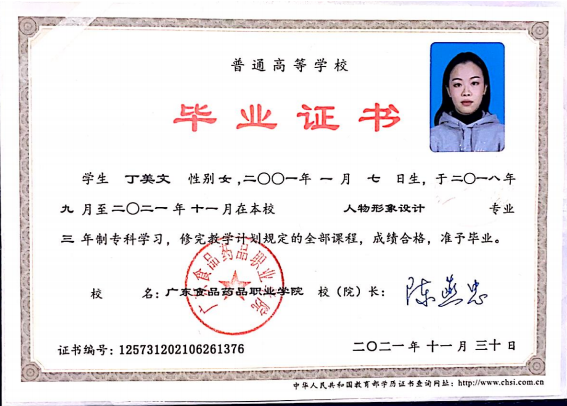 普通高等学校
毕业证书
学生 丁美文 性别 女,二〇〇一年 一 月 七 日生,于二〇一八年
九 月至二〇二一 年 十一月在本校 人物形象设计 专业
三 年制专科学习,修完教学计划规定的全部课程,成绩合格,准予毕业。
广东食品药品职业学院
校 名:广东食品药品职业学院 校(院)长:陈燕忠
证书编号:125731202106261376
二〇二一 年 十一 月 三十 日
中华人民共和国教育部学历证书查询网址:http://www.chsi.com.cn